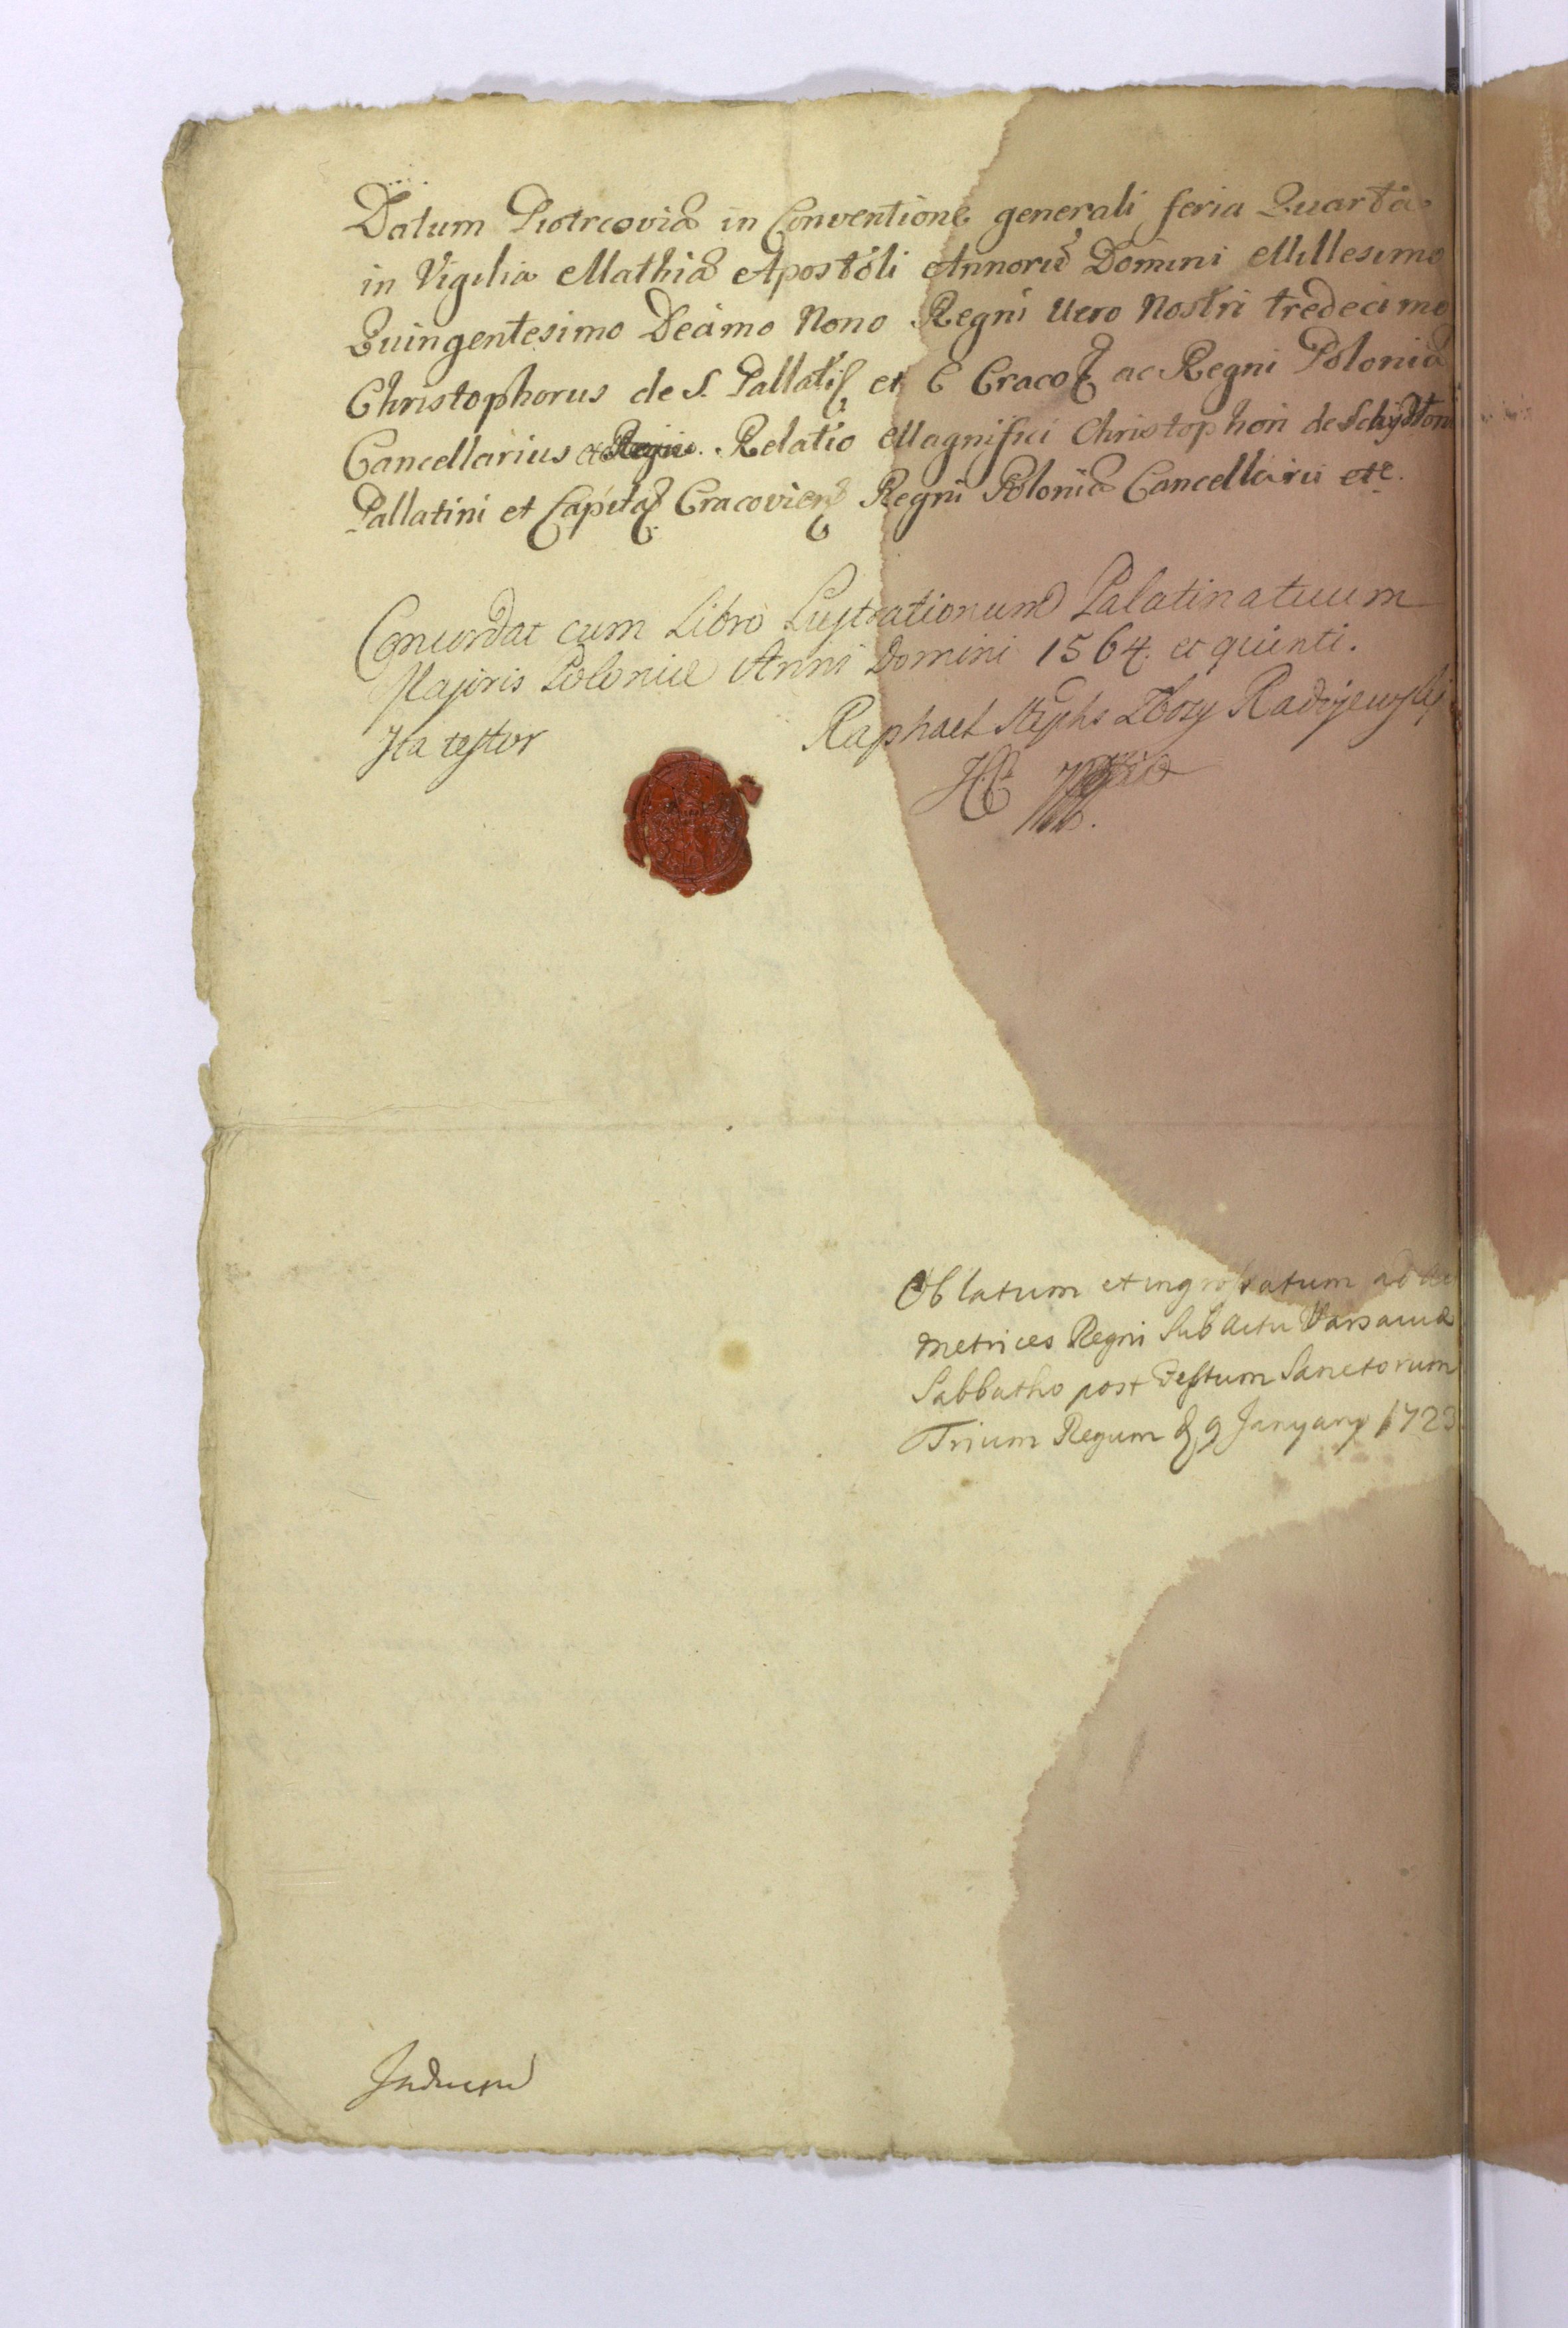 Datum Piotrcoviæ in Conventione generali feria Quarta
in Vigilia Mathiæ Apostoli Annorū Domini Millesimo
Quingentesimo Decimo Nono Regni Vero Nostri tredecimo
Christophorus de S. Pallat et C Craco ac Regni Poloniæ
Cancellarius Relatio Magnifici Christophori de Schydlow
Pallatini et Capit Cracovien Regni Poloniæ Cancellarii etc.
Concordat cum Libro Lustrationum Palatinatuum
Majoris Poloniæ Anni Domini 1564. et quinti.
Ita testor
Raphael Radojewski
Oblatum et ingrossatum ad
Metrices Regni Sub actu Varsaviæ
Sabbatho post Festum Sanctorum
Trium Regum 9 January 1723